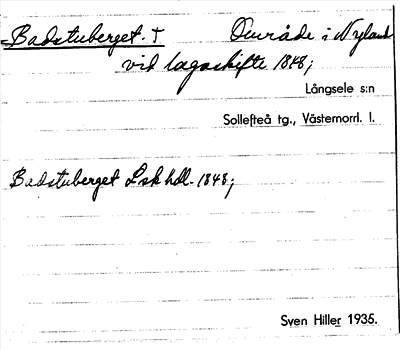 Badstuberget. † Område i Nyland
vid lagaskifte 1848;
Långsele s:n
Sollefteå tg., Västernorrl. l.
Badstuberget Lskhdl. 1848;
Sven Hiller 1935.